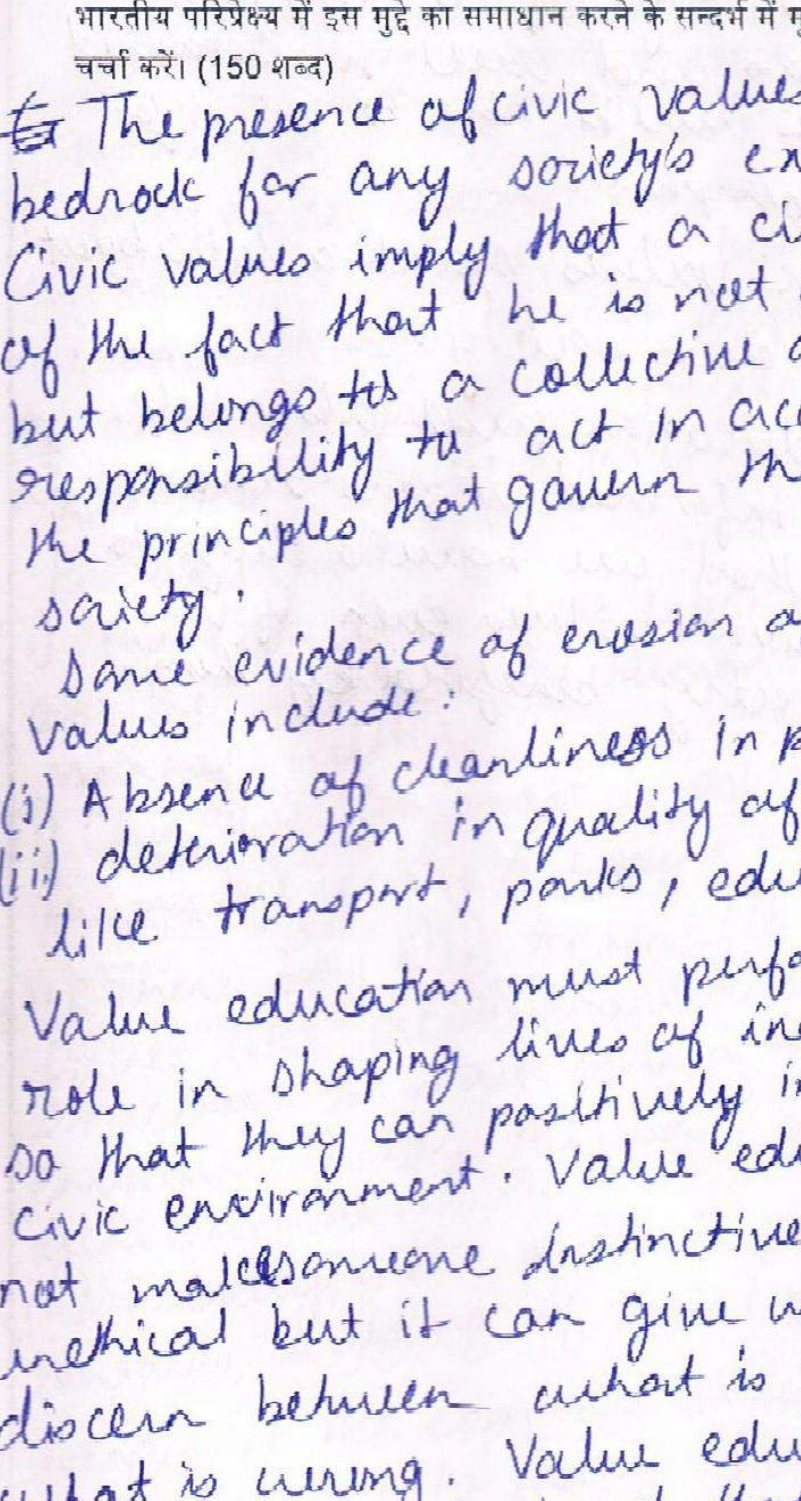 भारतीय परिप्रेक्ष्य में इस मुद्दे का समाधान करने के सन्दर्भ में
चर्चा करें। (150 शब्द)
The presence of civic values
bedrock for any society's ex
Civic values imply that a ci
of the fact that he is not
but belongs to a collective
responsibility to act in acc
the principles that govern th
society.
Some evidence of erosion o
values include:
(i) Absence of cleanliness in p
(ii) deterioration in quality of
like transport, parks, edu
Value education must perfo
role in shaping lives of in
so that they can positively i
civic environment. Value edu
not make someone distinctive
unethical but it can give u
discern between what is
what is wrong. Value edu